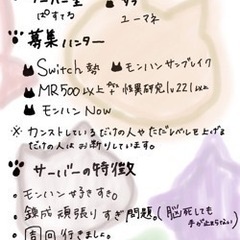 ぱすてる
ユーマネ
募集ハンター
Switch勢 モンハンサンブレイク
MR500以上 怪異研究lv221以上
モンハンNow
※カンストしているだけの人やただレベルを上げま
だけの人はお断りしています。
サーバーの特徴
・モンハン好きすぎ。
・錬成頑張りすぎ問題。(脳死しても
手が止まらない)
・周回行きました。